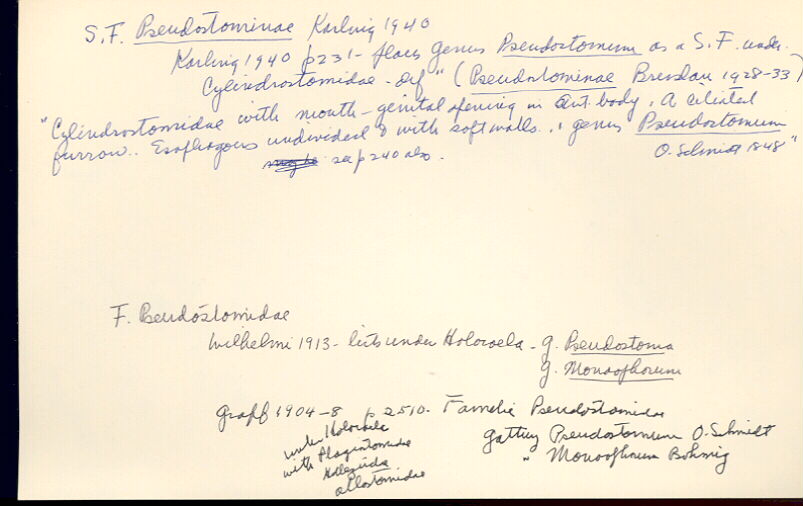 S.F. Pseudostominae Karling 1940
Karling 1940 p231 - places genus Pseudostomum as a S.F. under
Cylindrostomidae - def " (Pseudostominae Bresslau 1928-33)
"Cylindrostomidae with mouth-genital opening in ant. body. A ciliated
furrow.. Esophagous undivided & with soft walls.. 1 genus Pseudostomum
see p 240 also. O. Schmidt 1848"
F. Pseudostomidae
Wilhelmi 1913 - lists under Holocoela - g. Pseudostoma
g. Monoophorum
Graff 1904-8 p 2510. Familie Pseudostomidae
under Holocoela
gattung Pseudostomum O. Schmidt
with Plagiostomidae
" Monoophorum Bohmig
allostomidae